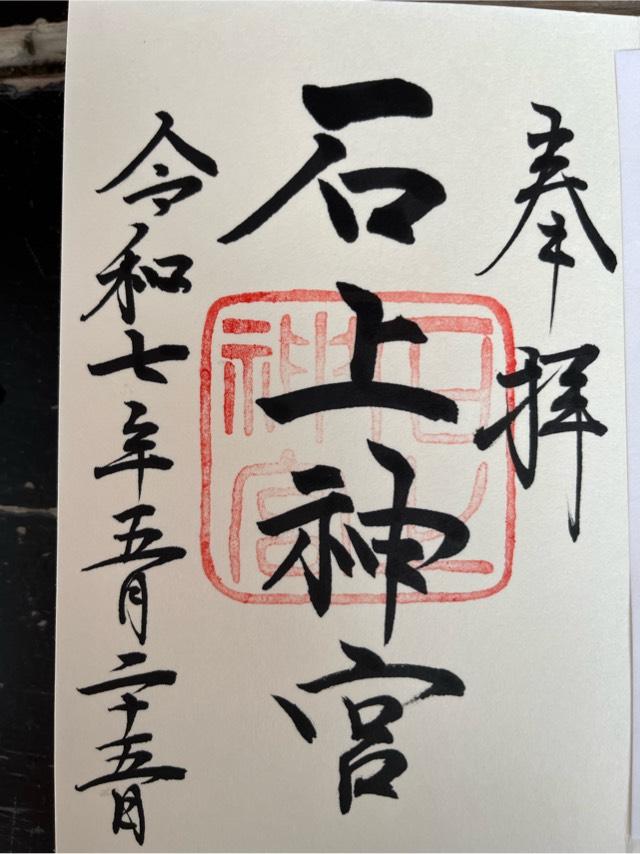 奉拝
石上神宮
令和七年五月二十五日